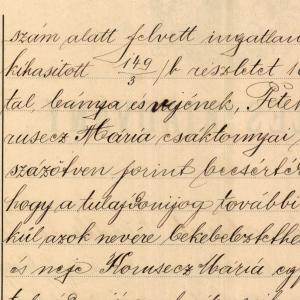 szám alatt felvett ingatlan
kihasitott 149/3 /b részletet 1
tal, leánya és vejének, Pete
rusecz Mária csáktornyai
százötven forint becsérté
hogy a tulajdonijog további
kül azok nevére bekebeleztethe
és neje Horusecz Mária eg